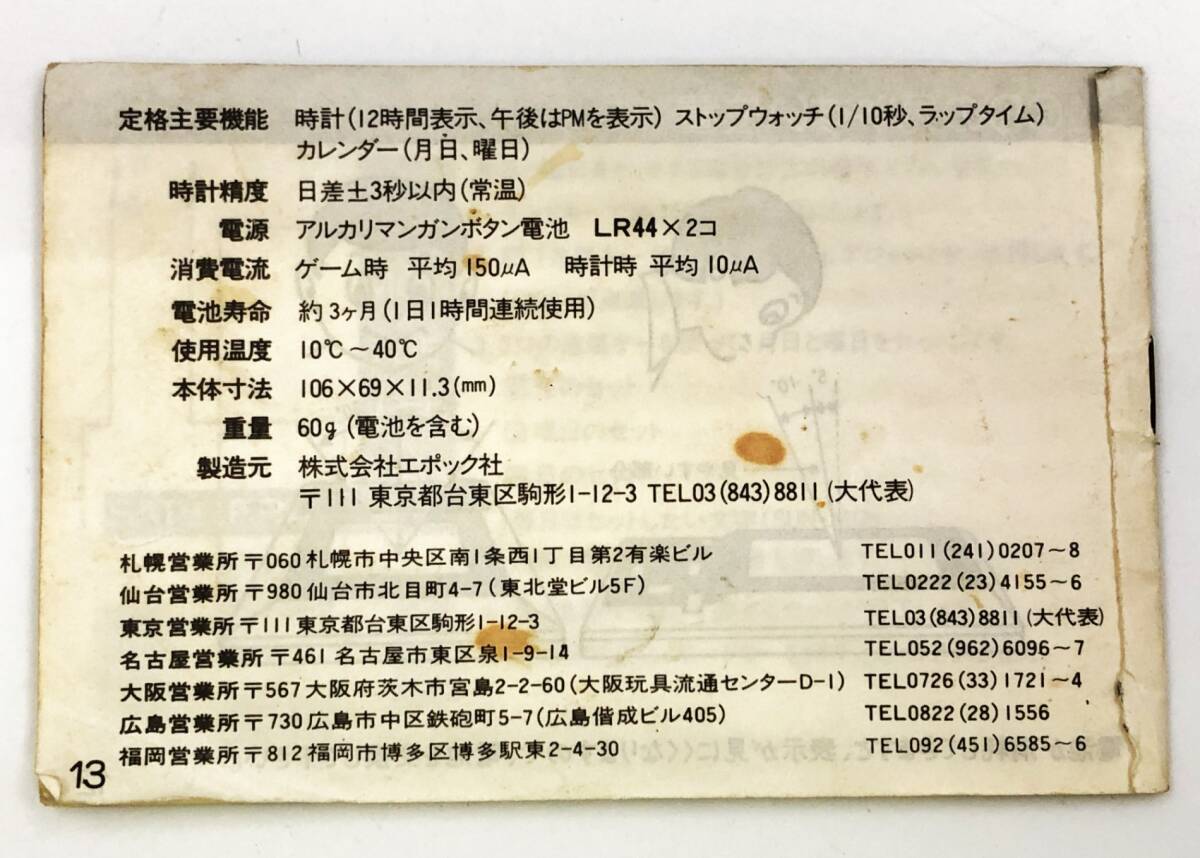 定格主要機能 時計(12時間表示、午後はPMを表示) ストップウォッチ(1/10秒、ラップタイム)
カレンダー(月日、曜日)
時計精度 日差±3秒以内(常温)
電源 アルカリマンガンボタン電池 LR44×2コ
消費電流 ゲーム時 平均150μA 時計時 平均10μA
電池寿命 約3ヶ月(1日1時間連続使用)
使用温度 10℃~40℃
本体寸法 106×69×11.3(mm)
重量 60g(電池を含む)
製造元 株式会社エポック社
〒111 東京都台東区駒形1-12-3 TEL03(843)8811(大代表)
札幌営業所 〒060 札幌市中央区南1条西1丁目第2有楽ビル TEL011(241)0207~8
仙台営業所 〒980 仙台市北目町4-7(東北堂ビル5F) TEL0222(23)4155~6
東京営業所 〒111 東京都台東区駒形1-12-3 TEL03(843)8811(大代表)
名古屋営業所 〒461 名古屋市東区泉1-9-14 TEL052(962)6096~7
大阪営業所 〒567 大阪府茨木市宮島2-2-60(大阪玩具流通センターD-1) TEL0726(33)1721~4
広島営業所 〒730 広島市中区鉄砲町5-7(広島偕成ビル405) TEL0822(28)1556
福岡営業所 〒812 福岡市博多区博多駅東2-4-30 TEL092(451)6585~6
13